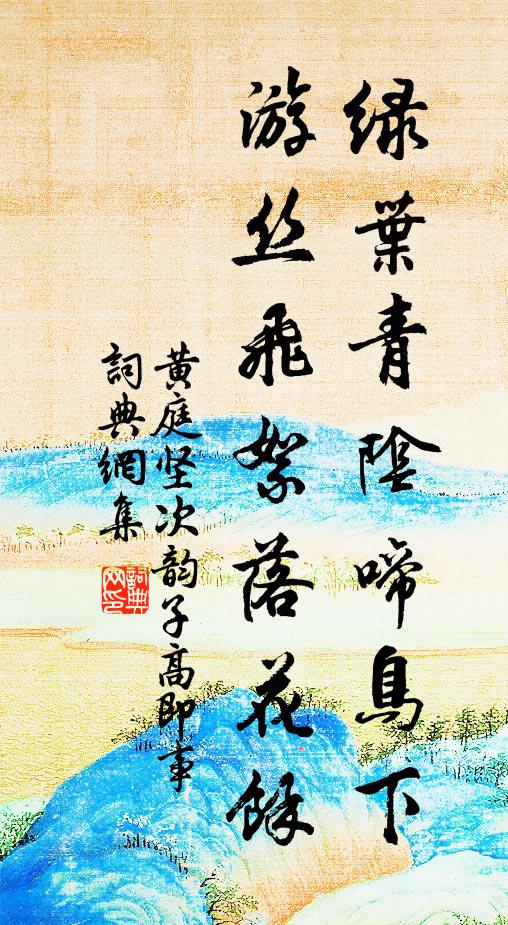 绿葉青陰啼鳥下
游丝飛絮落花餘
黄庭坚次韵子高即事
詞典網集
詞典网印